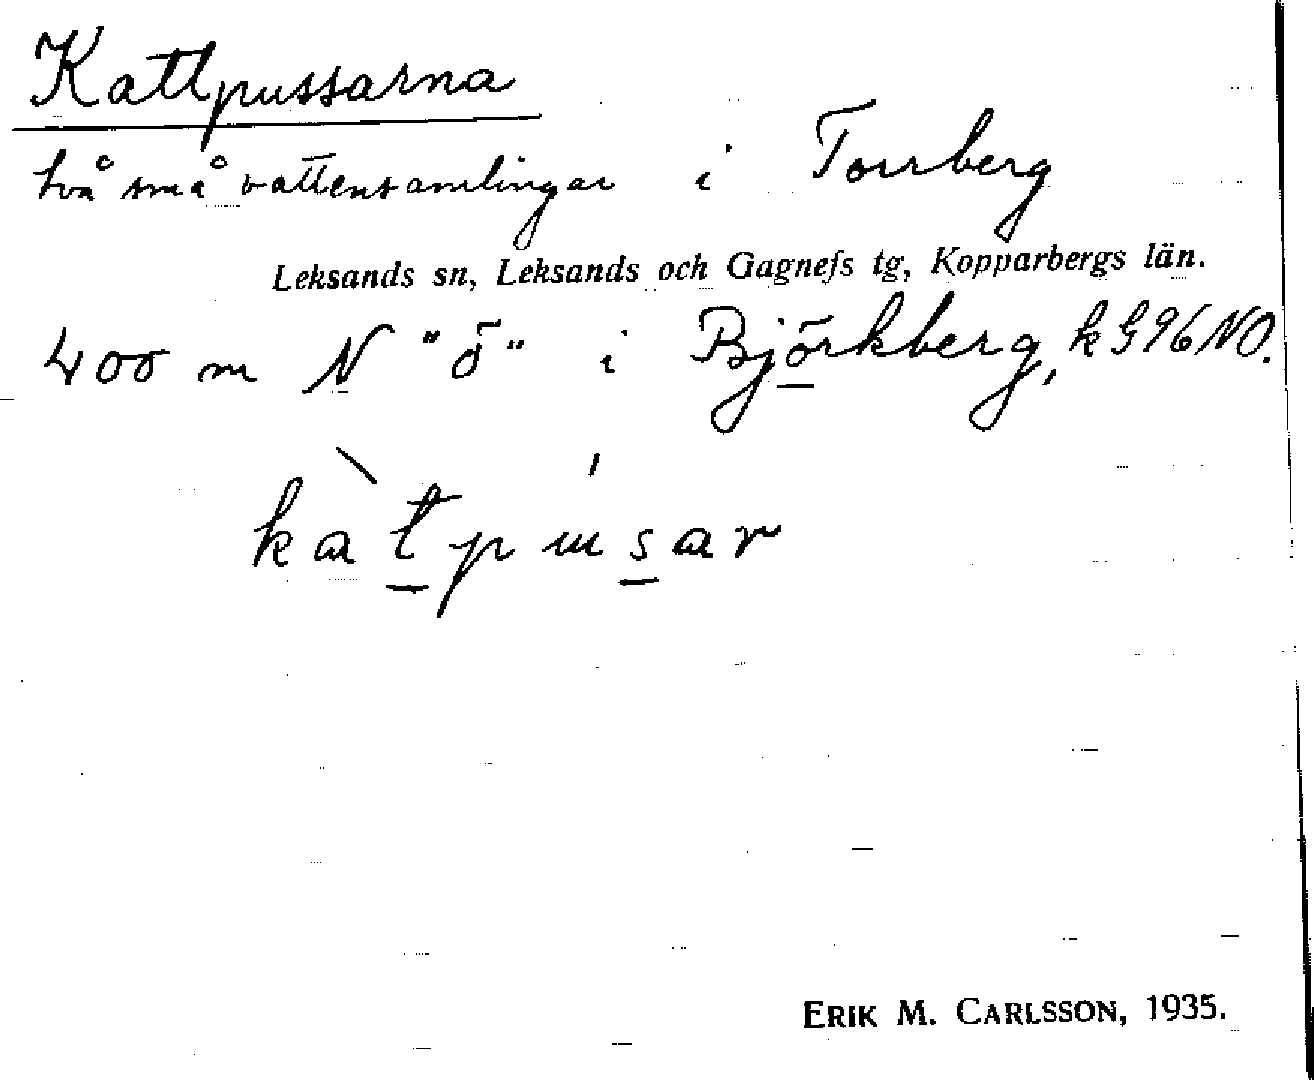 Kattpussarna
två små vattensamlingar i Torrberg
Leksands sn, Leksands och Gagnefs tg, Kopparbergs län.
400 m N "ö" i Björkberg, k G96NO.
kàtpúsar
ERIK M. CARLSSON, 1935.